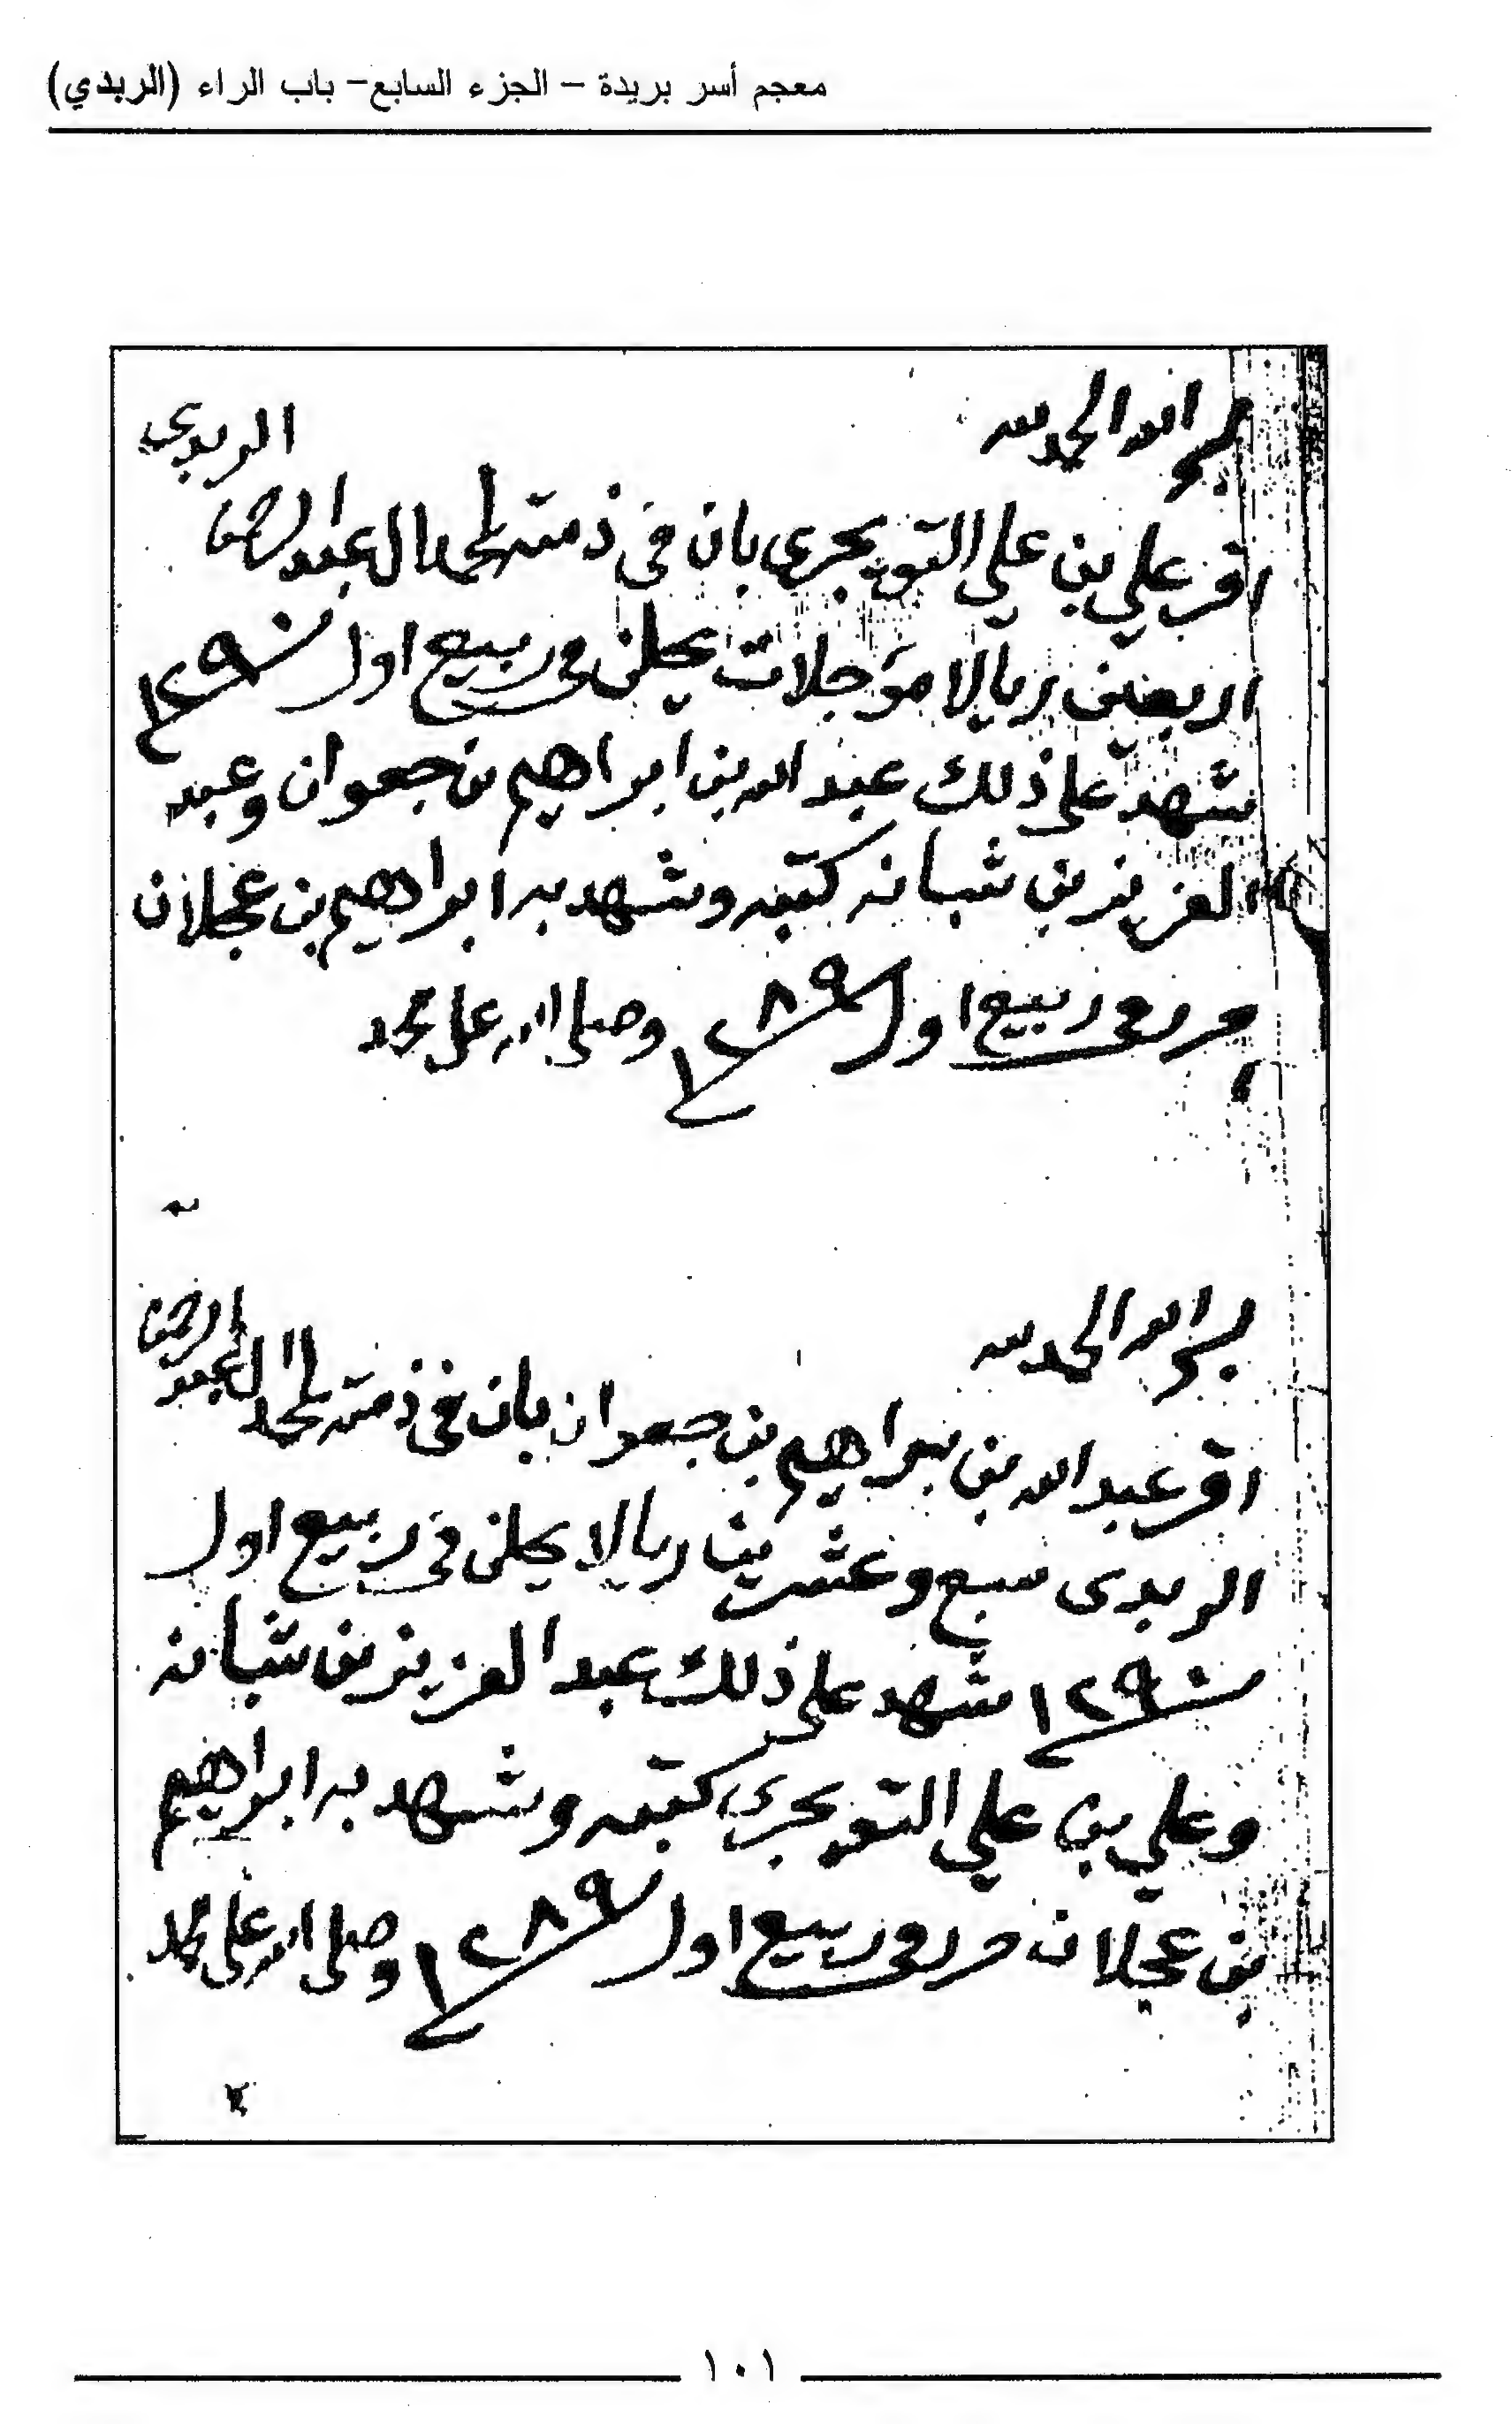 معجم أسر بريدة – الجزء السابع – باب الراء (الربدي)
بسم الله الحمد لله
الربدي
اقر علي بن علي التويجري بان في ذمته لمحمد ال عبد الرحمن
اربعين ريالا مؤجلات يحلن في ربيع اول سنة ١٢٩٠
شهد على ذلك عبد الله بن ابراهيم بن جعوان وعبد
العزيز بن شبانه كتبه وشهد به ابراهيم بن عجلان
حرر في ربيع اول سنة ١٢٨٩ وصلى الله على محمد
بسم الله الحمد لله
اقر عبد الله بن براهيم بن جعوان بان في ذمته لمحمد العبد الرحمن
الربدى سبع وعشرين ريالا يحلن في ربيع اول
سنة ١٢٩٠ شهد على ذلك عبد العزيز بن شبانه
وعلي بن علي التويجري كتبه وشهد به ابراهيم
بن عجلان حرر في ربيع اول سنة ١٢٨٩ وصلى الله على محمد
١٠١